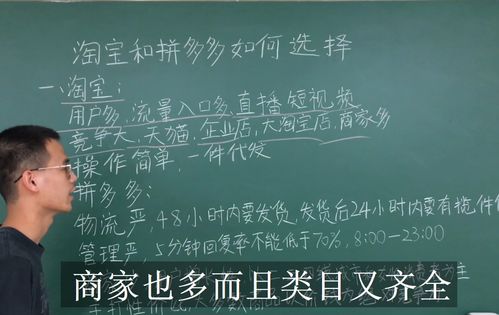 淘宝和拼多多如何选择
一、淘宝：
用户多，流量入口多，直播短视频
竞争大，天猫，企业店，大淘宝店，商家多
操作简单，一件代发
拼多多：
物流严，48小时内要发货，发货后24小时内要有揽件
管理严，5分钟回复率不能低于70%，8:00—23:00
商家也多而且类目又齐全